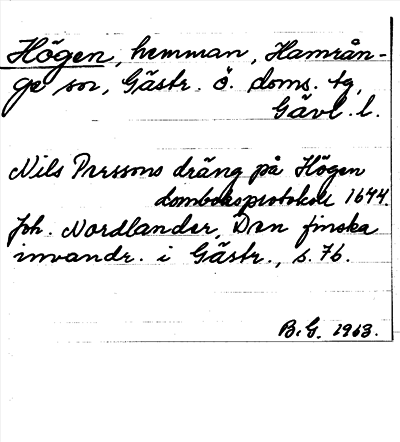 Högen, hemman, Hamrån-
ge sn, Gästr. ö. doms. tg,
Gävl. l.
Nils Perssons dräng på Högen
domboksprotokoll 1644.
Joh. Nordlander, Den finska
invandr. i Gästr., s. 76.
B.G. 1963.